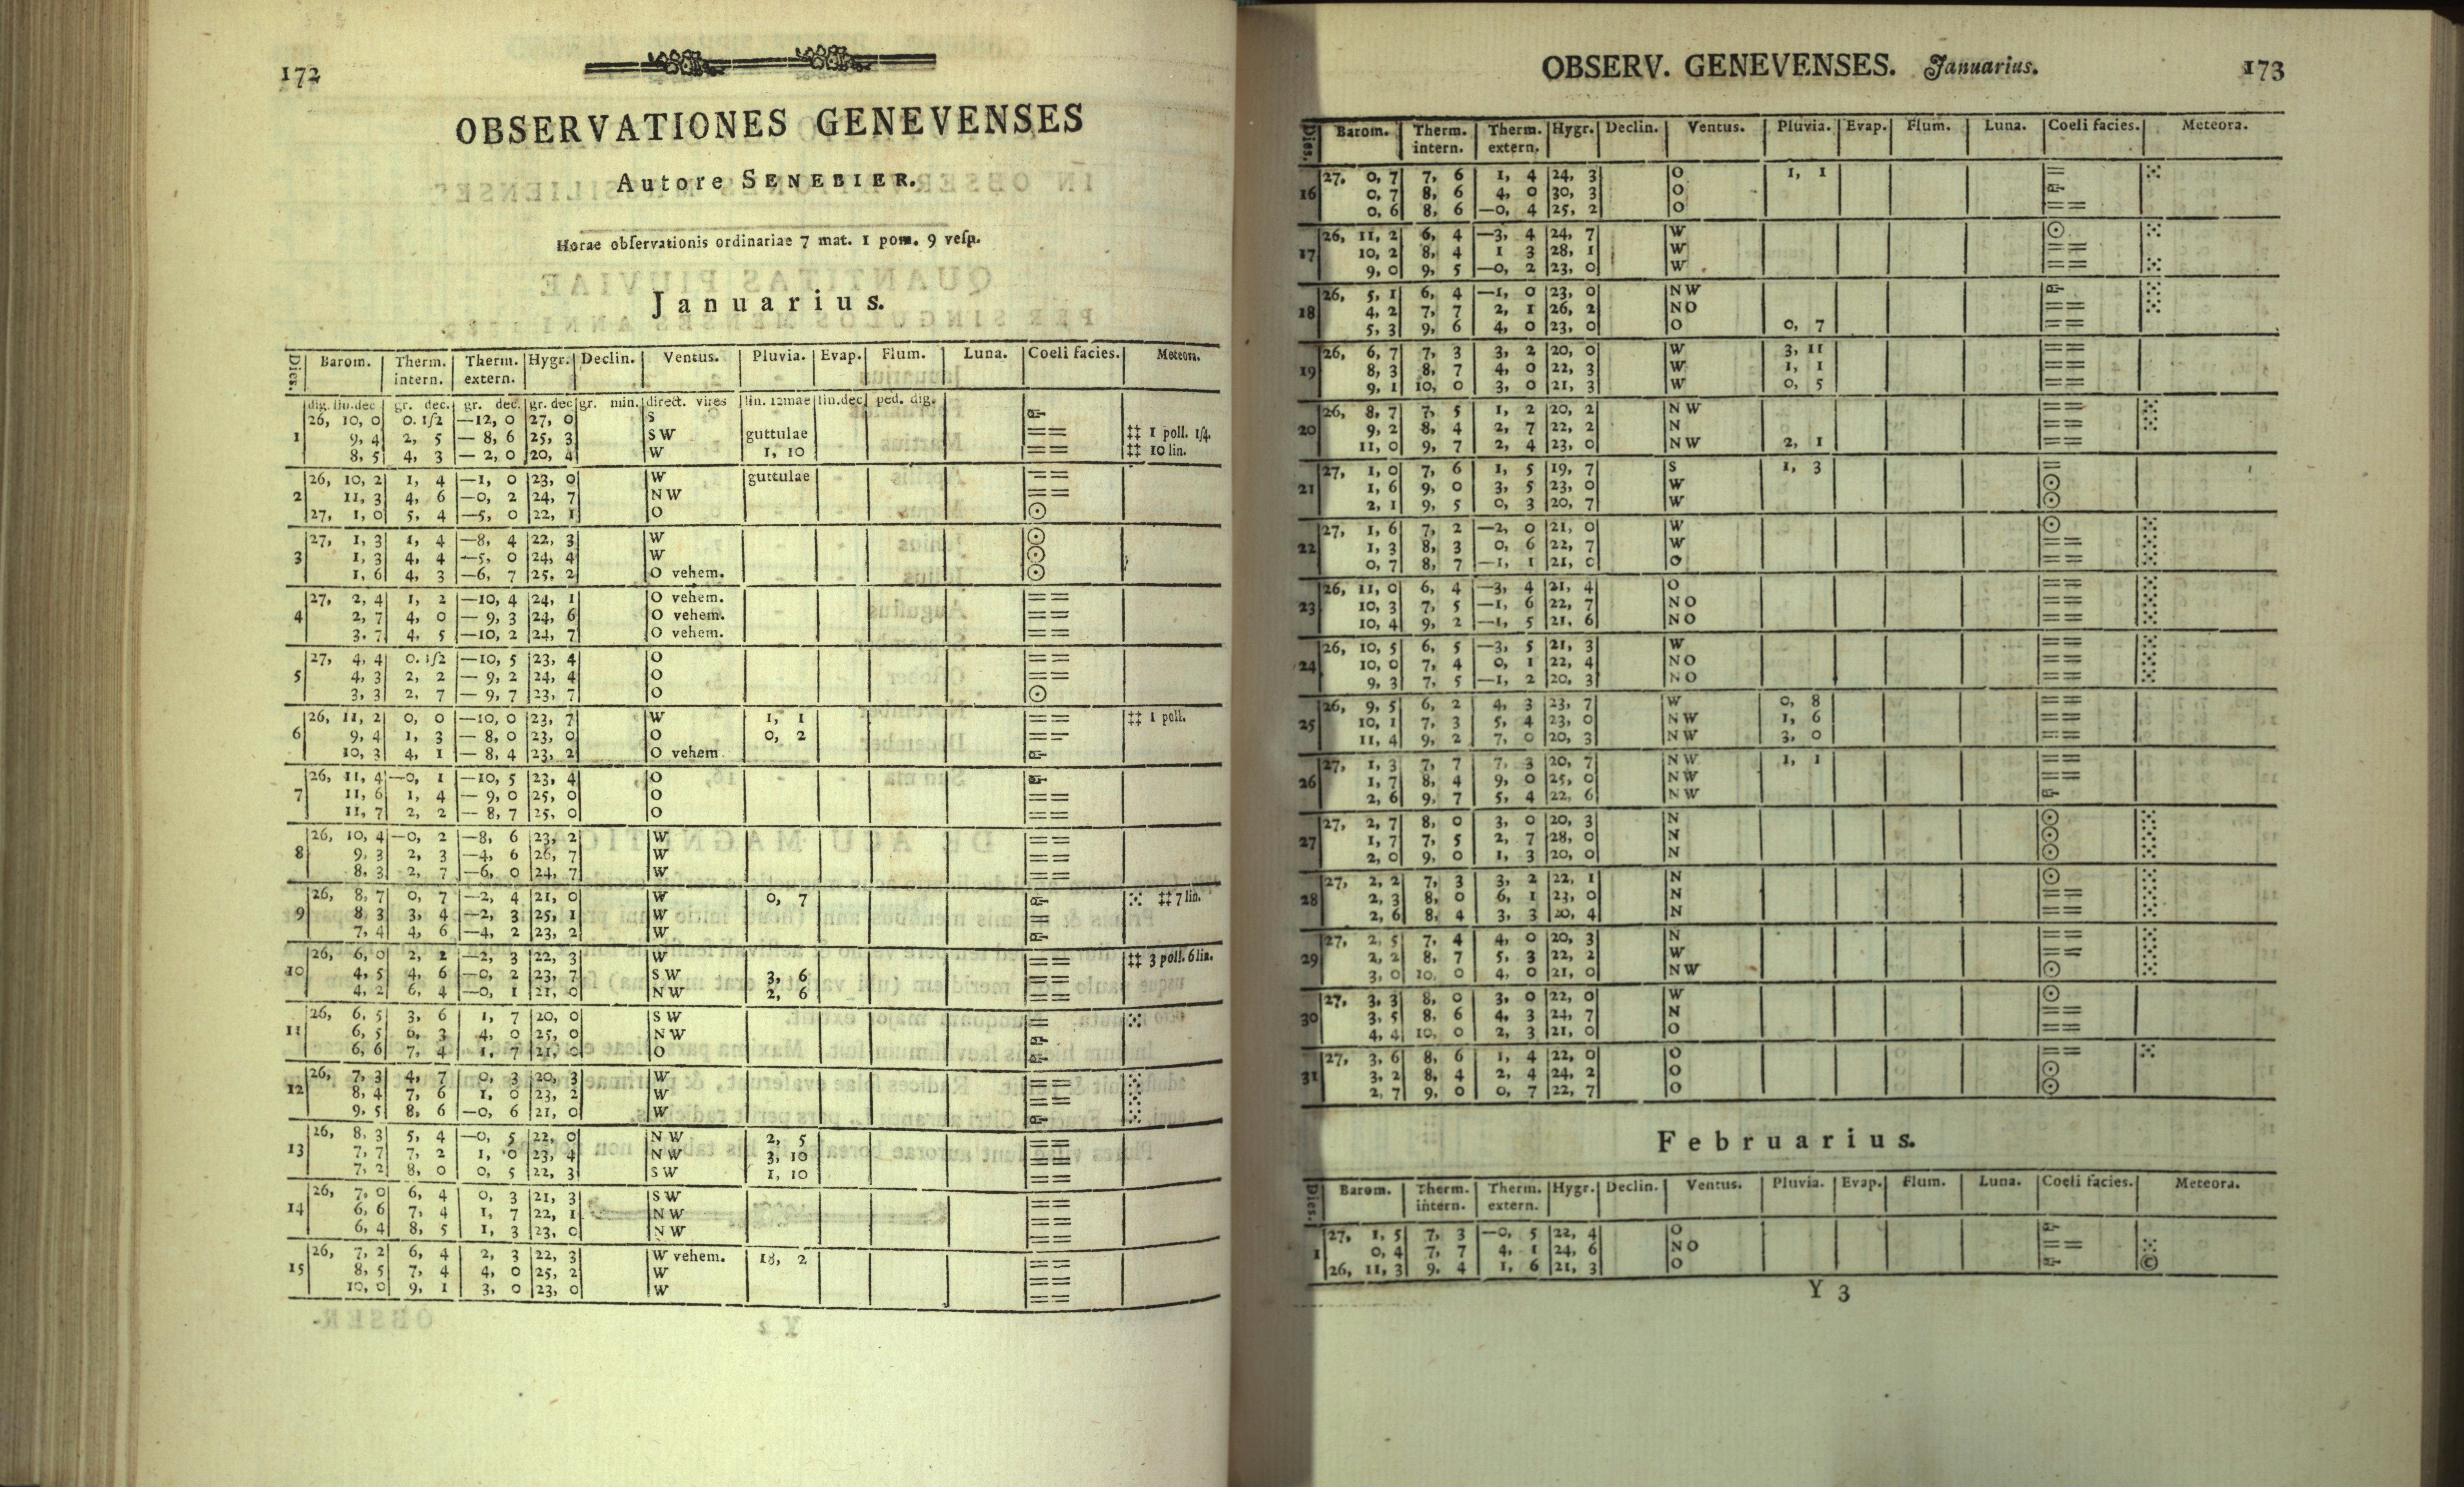 172
OBSERVATIONES GENEVENSES
Autore SENEBIER.
Horae obſervationis ordinariae 7 mat. 1 pom. 9 veſp.
Januarius.
Dies. Barom. Therm. intern. Therm. extern. Hygr. Declin. Ventus. Pluvia. Evap. Flum. Luna. Coeli facies. Meteora.
dig. lin. dec gr. dec. gr. dec. gr. dec gr. min. direct. vires lin. 12mae lin. dec ped. dig.
26, 10, 0 0. 1/2 —12, 0 27, 0 S
1 9, 4 2, 5 — 8, 6 25, 3 SW guttulae == ‡‡ 1 poll. 1/4.
8, 5 4, 3 — 2, 0 20, 4 W 1, 10 == ‡‡ 10 lin.
26, 10, 2 1, 4 —1, 0 23, 0 W guttulae ==
2 11, 3 4, 6 —0, 2 24, 7 NW ==
27, 1, 0 5, 4 —5, 0 22, 1 O ☉
27, 1, 3 1, 4 —8, 4 22, 3 W ☉
3 1, 3 4, 4 —5, 0 24, 4 W ☉
1, 6 4, 3 —6, 7 25, 2 O vehem. ☉
27, 2, 4 1, 2 —10, 4 24, 1 O vehem. ==
4 2, 7 4, 0 — 9, 3 24, 6 O vehem. ==
3, 7 4, 5 —10, 2 24, 7 O vehem. ==
27, 4, 4 0. 1/2 —10, 5 23, 4 O ==
5 4, 3 2, 2 — 9, 2 24, 4 O ==
3, 3 2, 7 — 9, 7 23, 7 O ☉
26, 11, 2 0, 0 —10, 0 23, 7 W 1, 1 == ‡‡ 1 poll.
6 9, 4 1, 3 — 8, 0 23, 0 O 0, 2 ==
10, 3 4, 1 — 8, 4 23, 2 O vehem
26, 11, 4 —0, 1 —10, 5 23, 4 O
7 11, 6 1, 4 — 9, 0 25, 0 O ==
11, 7 2, 2 — 8, 7 25, 0 O ==
26, 10, 4 —0, 2 —8, 6 23, 2 W ==
8 9, 3 2, 3 —4, 6 26, 7 W ==
8, 3 2, 7 —6, 0 24, 7 W ==
26, 8, 7 0, 7 —2, 4 21, 0 W 0, 7 ⁙ ‡‡ 7 lin.
9 8 3 3, 4 —2, 3 25, 1 W =
7, 4 4, 6 —4, 2 23, 2 W
26, 6, 0 2, 2 —2, 3 22, 3 W == ‡‡ 3 poll. 6 lin.
10 4, 5 4, 6 —0, 2 23, 7 SW 3, 6 ==
4, 2 6, 4 —0, 1 21, 0 NW 2, 6 ==
26, 6, 5 3, 6 1, 7 20, 0 SW = ⁙
11 6, 5 6, 3 4, 0 25, 0 NW
6, 6 7, 4 1, 7 21, 0 O
26, 7, 3 4, 7 0, 3 20, 3 W == ⁙
12 8, 4 7, 6 1, 0 23, 2 W == ⁙
9, 5 8, 6 —0, 6 21, 0 W ⁙
26, 8, 3 5, 4 —0, 5 22, 0 NW 2, 5 ==
13 7, 7 7, 2 1, 0 23, 4 NW 3, 10 ==
7, 2 8, 0 0, 5 22, 3 SW 1, 10 ==
26, 7, 0 6, 4 0, 3 21, 3 SW ==
14 6, 6 7, 4 1, 7 22, 1 NW ==
6, 4 8, 5 1, 3 23, 0 NW ==
26, 7, 2 6, 4 2, 3 22, 3 W vehem. 18, 2 ==
15 8, 5 7, 4 4, 0 25, 2 W ==
10, 0 9, 1 3, 0 23, 0 W ==
OBSERV. GENEVENSES. Januarius. 173
Dies. Barom. Therm. intern. Therm. extern. Hygr. Declin. Ventus. Pluvia. Evap. Flum. Luna. Coeli facies. Meteora.
27, 0, 7 7, 6 1, 4 24, 3 O 1, 1 = ⁙
16 0, 7 8, 6 4, 0 30, 3 O
0, 6 8, 6 —0, 4 25, 2 O ==
26, 11, 2 6, 4 —3, 4 24, 7 W ☉ ⁙
17 10, 2 8, 4 1 3 28, 1 W ==
9, 0 9, 5 —0, 2 23, 0 W == ⁙
26, 5, 1 6, 4 —1, 0 23, 0 NW ⁙
18 4, 2 7, 7 2, 1 26, 2 NO == ⁙
5, 3 9, 6 4, 0 23, 0 O 0, 7 ==
26, 6, 7 7, 3 3, 2 20, 0 W 3, 11 ==
19 8, 3 8, 7 4, 0 22, 3 W 1, 1 ==
9, 1 10, 0 3, 0 21, 3 W 0, 5 ==
26, 8, 7 7, 5 1, 2 20, 2 NW == ⁙
20 9, 2 8, 4 2, 7 22, 2 N == ⁙
11, 0 9, 7 2, 4 23, 0 NW 2, 1 ==
27, 1, 0 7, 6 1, 5 19, 7 S 1, 3 =
21 1, 6 9, 0 3, 5 23, 0 W ☉
2, 1 9, 5 0, 3 20, 7 W ☉
27, 1, 6 7, 2 —2, 0 21, 0 W ☉ ⁙
22 1, 3 8, 3 0, 6 22, 7 W == ⁙
0, 7 8, 7 —1, 1 21, 0 O == ⁙
26, 11, 0 6, 4 —3, 4 21, 4 O == ⁙
23 10, 3 7, 5 —1, 6 22, 7 NO == ⁙
10, 4 9, 2 —1, 5 21, 6 NO == ⁙
26, 10, 5 6, 5 —3, 5 21, 3 W == ⁙
24 10, 0 7, 4 0, 1 22, 4 NO == ⁙
9, 3 7, 5 —1, 2 20, 3 NO == ⁙
26, 9, 5 6, 2 4, 3 23, 7 W 0, 8 ==
25 10, 1 7, 3 5, 4 23, 0 NW 1, 6 ==
11, 4 9, 2 7, 0 20, 3 NW 3, 0 ==
27, 1, 3 7, 7 7, 3 20, 7 NW 1, 1 ==
26 1, 7 8, 4 9, 0 25, 0 NW ==
2, 6 9, 7 5, 4 22, 6 NW
27, 2, 7 8, 0 3, 0 20, 3 N ☉ ⁙
27 1, 7 7, 5 2, 7 28, 0 N ☉ ⁙
2, 0 9, 0 1, 3 20, 0 N ☉ ⁙
27, 2, 2 7, 3 3, 2 22, 1 N ☉ ⁙
28 2, 3 8, 0 6, 1 23, 0 N == ⁙
2, 6 8, 4 3, 3 20, 4 N == ⁙
27, 2, 5 7, 4 4, 0 20, 3 N == ⁙
29 2, 2 8, 7 5, 3 22, 2 W == ⁙
3, 0 10, 0 4, 0 21, 0 NW ☉ ⁙
27, 3, 3 8, 0 3, 0 22, 0 W ☉
30 3, 5 8, 6 4, 3 24, 7 N ==
4, 4 10, 0 2, 3 21, 0 O ==
27, 3, 6 8, 6 1, 4 22, 0 O == ⁙
31 3, 2 8, 4 2, 4 24, 2 O ☉
2, 7 9, 0 0, 7 22, 7 O ☉
Februarius.
Dies. Barom. Therm. intern. Therm. extern. Hygr. Declin. Ventus. Pluvia. Evap. Flum. Luna. Coeli facies. Meteora.
27, 1, 5 7, 3 —0, 5 22, 4 O
1 0, 4 7, 7 4, 1 24, 6 NO == ⁙
26, 11, 3 9, 4 1, 6 21, 3 O ©
Y 3